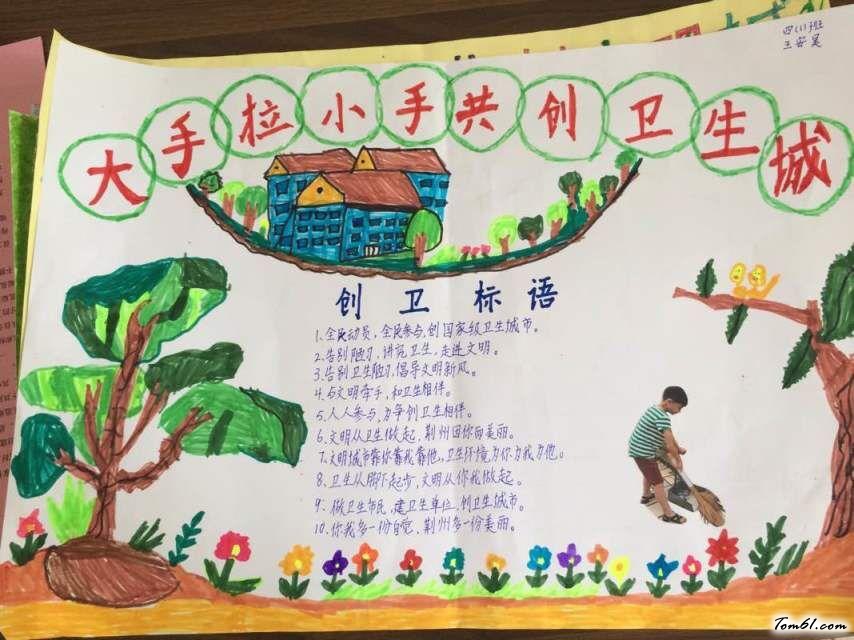 四(1)班
王安昊
大手拉小手共创卫生城
创卫标语
1、全民动员，全民参与，创国家级卫生城市。
2、告别陋习，讲究卫生，走进文明。
3、告别卫生陋习，倡导文明新风。
4、与文明牵手，和卫生相伴。
5、人人参与，力争创卫生相伴。
6、文明从卫生做起，荆州因你而美丽。
7、文明城市靠你靠我靠他，卫生环境为你为我为他。
8、卫生从脚下起步，文明从你我做起。
9、做卫生市民，建卫生单位，创卫生城市。
10、你我多一份自觉，荆州多一份美丽。
Tom61.com